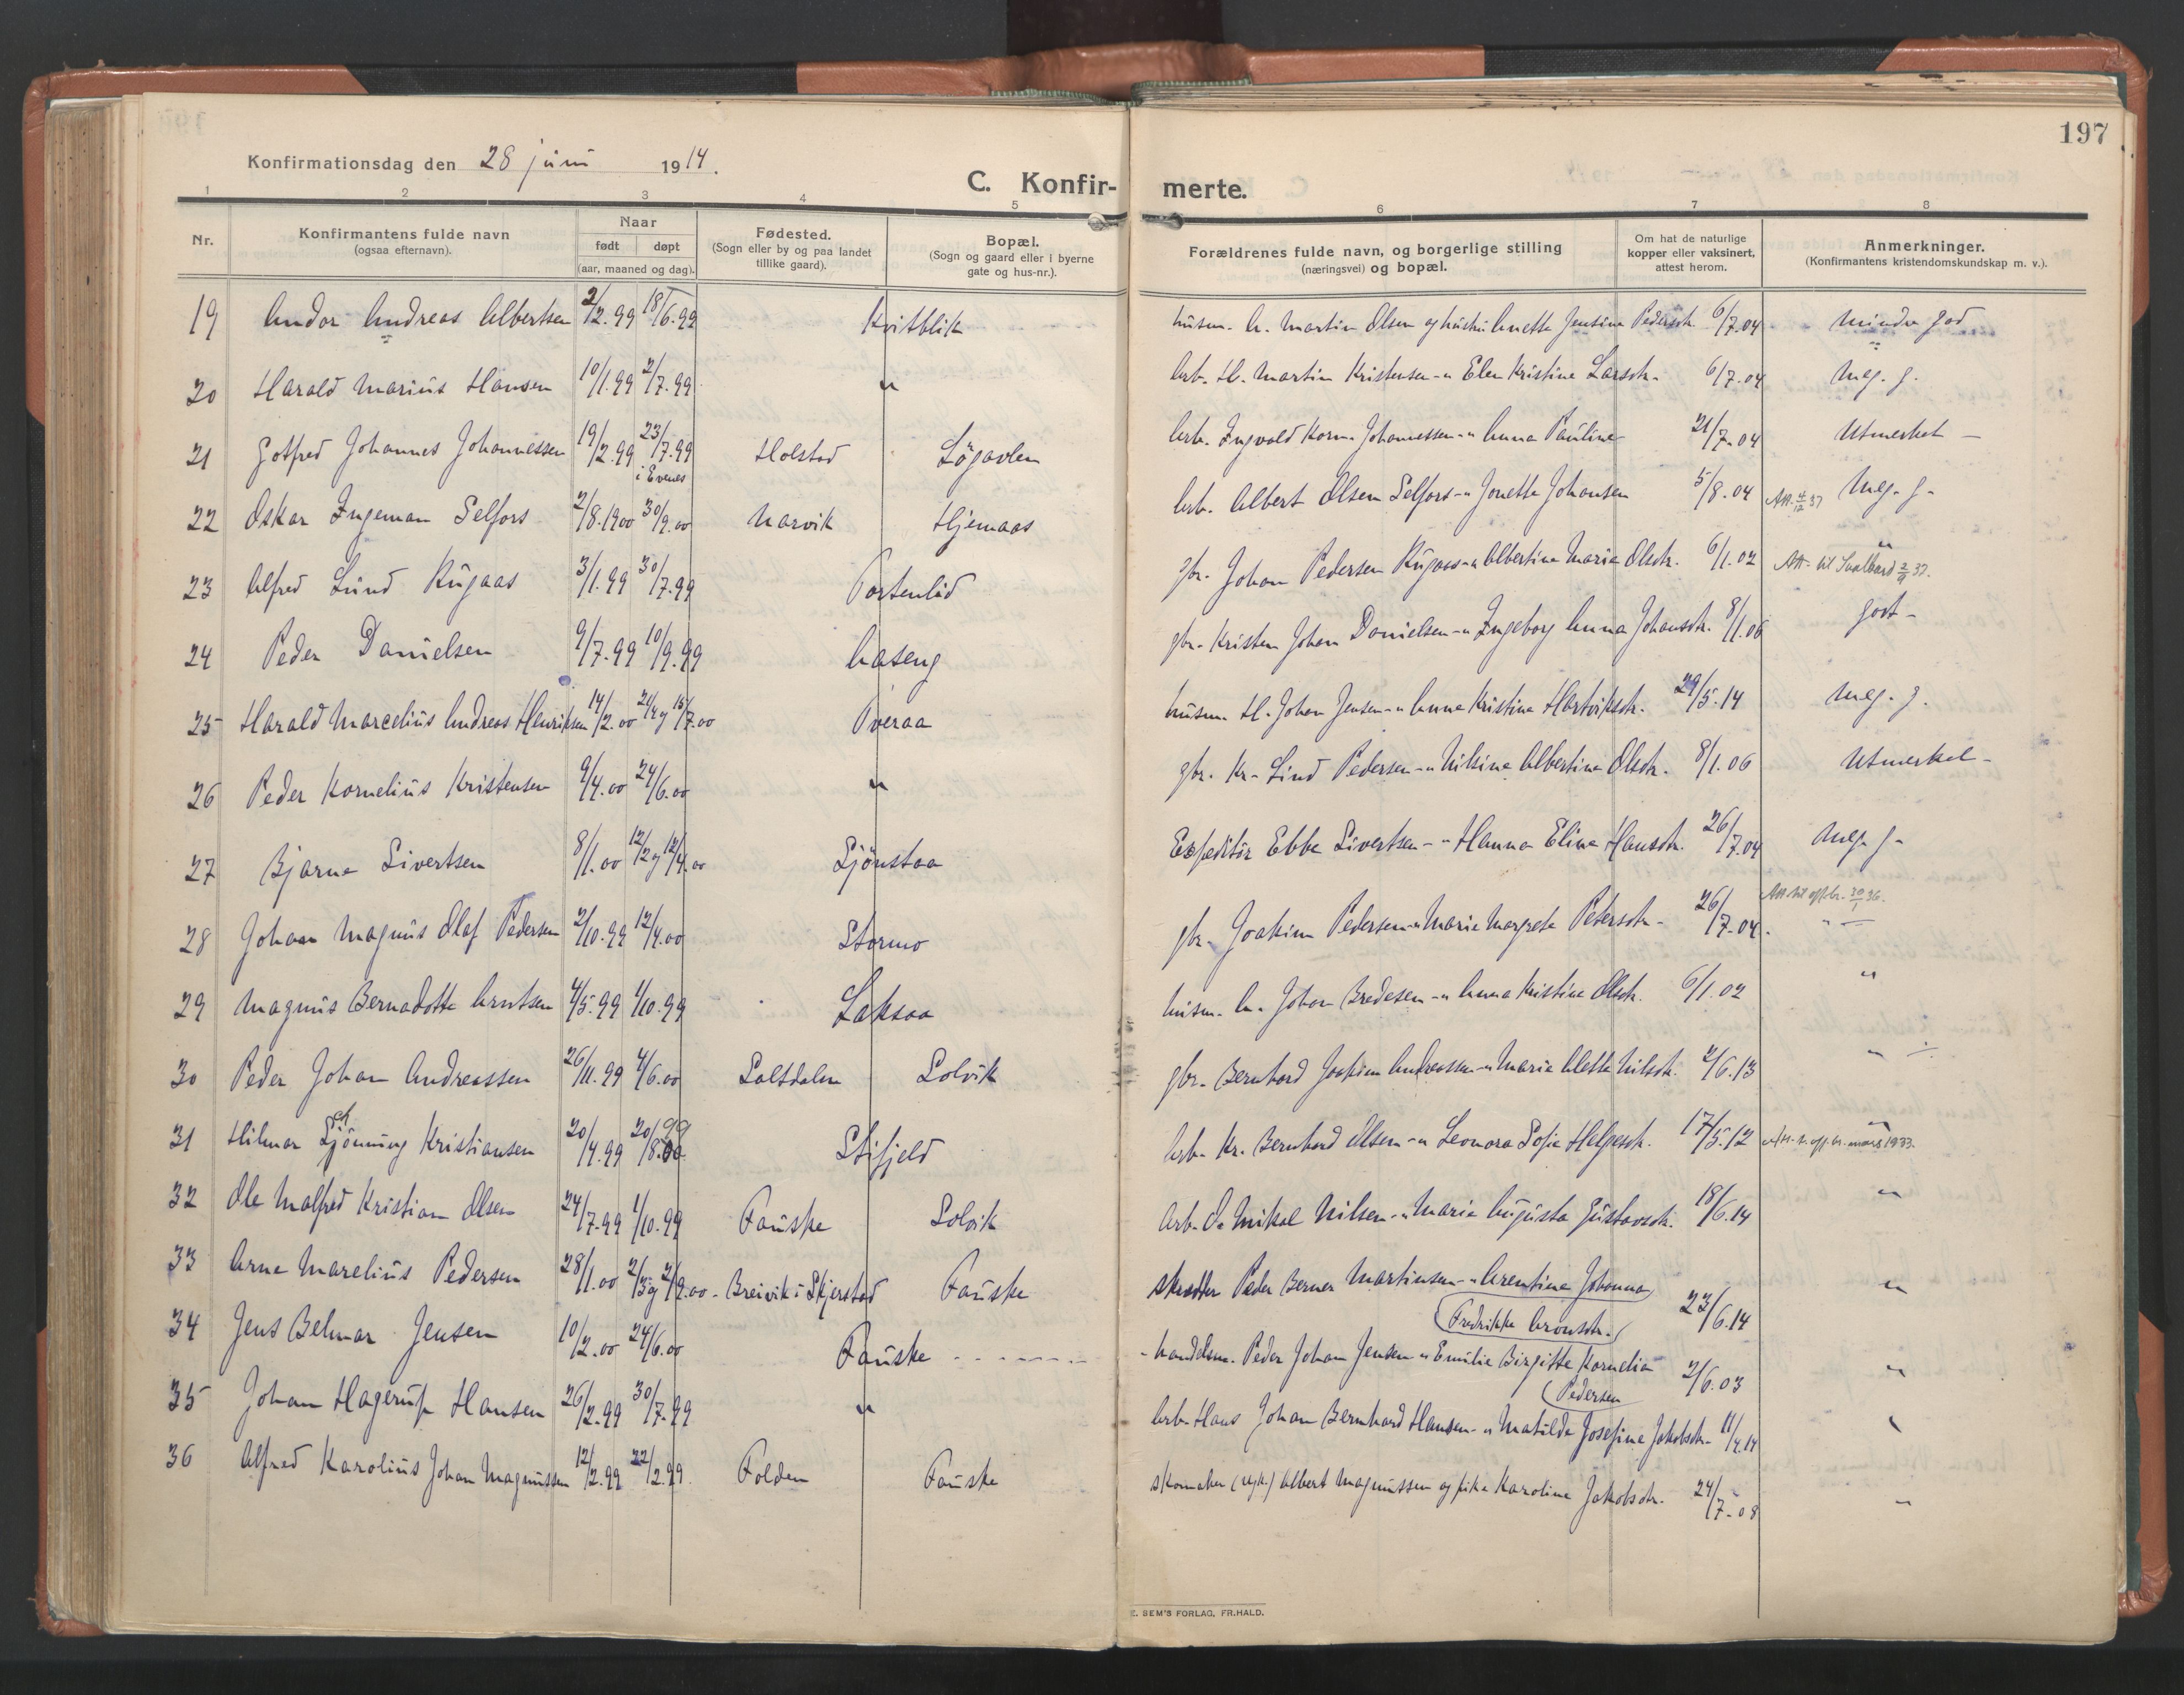 197
Konfirmationsdag den 28 juni 1914.
C. Konfir- merte.
1 2 3 4 5 6 7 8
Nr.
Konfirmantens fulde navn
(ogsaa efternavn).
Naar
født døpt
(aar, maaned og dag).
Fødested.
(Sogn eller by og paa landet
tillike gaard).
Bopæl.
(Sogn og gaard eller i byerne
gate og hus-nr.).
Forældrenes fulde navn, og borgerlige stilling
(næringsvei) og bopæl.
Om hat de naturlige
kopper eller vaksinert,
attest herom.
Anmerkninger.
(Konfirmantens kristendomskundskap m. v.).
19 Andor Andreas Albertsen 2/2.99 18/6.99 Kvitblik husm. A. Martin Olsen og hustru Anette Jensine Pedersdtr. 6/7.04 Mindre god
20 Harald Marius Hansen 10/1.99 2/7.99 " Arb. H. Martin Kristensen - " Elen Kristine Larsdtr. 6/7.04 Meg. g.
21 Gotfred Johannes Johannessen 19/2.99 23/7.99 Holstad Løgavlen Arb. Ingvald Korn. Johannessen - " Anna Pauline 21/7.04 Utmerket -
i Evenes
22 Oskar Ingeman Selfors 2/8.1900 30/9.00 Narvik Hjemaas Arb. Albert Olsen Selfors - " Jonette Johansen 5/8.04 Att. 4/12 37 Meg. g.
23 Alfred Lund Rugaas 3/1.99 30/7.99 Tortenlid gbr. Johan Pedersen Rugaas - " Albertine Marie Olsdtr. 6/1.02 " Att. til Svalbard 2/9 37.
24 Peder Danielsen 9/7.99 10/9.99 Aaseng gbr. Kristen Johan Danielsen - " Ingeborg Anna Johansdtr. 8/1.06 godt -
25 Harald Marcelius Andreas Henriksen 14/2.00 21/4 og 15/7.00 Tveraa husm. H. Johan Jensen - " Anna Kristine Hartviksdtr. 29/5.14 Meg. g.
26 Peder Kornelius Kristensen 9/4.00 24/6.00 " gbr. Kr. Lind Pedersen - " Nilsine Albertine Olsdtr. 8/1.06 Utmerket -
27 Bjarne Sivertsen 8/1.00 12/2 og 12/4.00 Sjønstaa Expeditør Ebbe Sivertsen - " Hanna Eline Hansdtr. 26/7.04 Meg. g.
28 Johan Magnus Olaf Pedersen 2/10.99 12/4.00 Stormo gbr. Joakim Pedersen - " Marie Margrete Petersdtr. 26/7.04. Att. til opf.br. 20/1 36. " -
29 Magnus Bernadotte Arntsen 4/5.99 1/10.99 Laksaa husm. A. Johan Bredesen - " Anna Kristine Olsdtr. 6/1.02 "
30 Peder Johan Andreassen 26/11.99 4/6.00 Saltdalen Solvik gbr. Bernhard Joakim Andreassen - " Marie Aletta Nilsdtr. 2/6.13 "
31 Hilmar Sjønning Kristiansen 20/4.99 20/8.99 Stifjeld Arb. Kr. Bernhard Olsen - " Leonora Sofie Helgesdtr. 17/5.12 " Att. t. opf. br. mars 1933.
32 Ole Malfred Kristian Olsen 24/7.99 1/10.99 Fauske Solvik Arb. O. Mikal Nilsen - " Marie Augusta Gustavsdtr. 18/6.14 "
33 Arne Marelius Pedersen 28/1.00 2/3 og 2/9.00 - Breivik i Skjerstad Fauske skrædder Peder Berner Martinsen - " Arentine Johanna
Fredrikke Aronsdtr. 22/6.14 "
34 Jens Belmar Jensen 10/2.00 24/6.00 Fauske - handelsm. Peder Johan Jensen " Emilie Birgitte Kornelia
Pedersen 2/6.03 "
35 Johan Hagerup Hansen 26/2.99 30/7.99 " Arb. Hans Johan Bernhard Hansen - " Matilde Josefine Jakobsdtr. 11/4.14
36 Alfred Karolius Johan Magnussen 12/2.99 22/2.99. Folden Fauske skomaker (ugk.) Albert Magnussen og pike Karoline Jakobsdtr. 24/7.08 "
E. SEM'S FORLAG, FR.HALD.